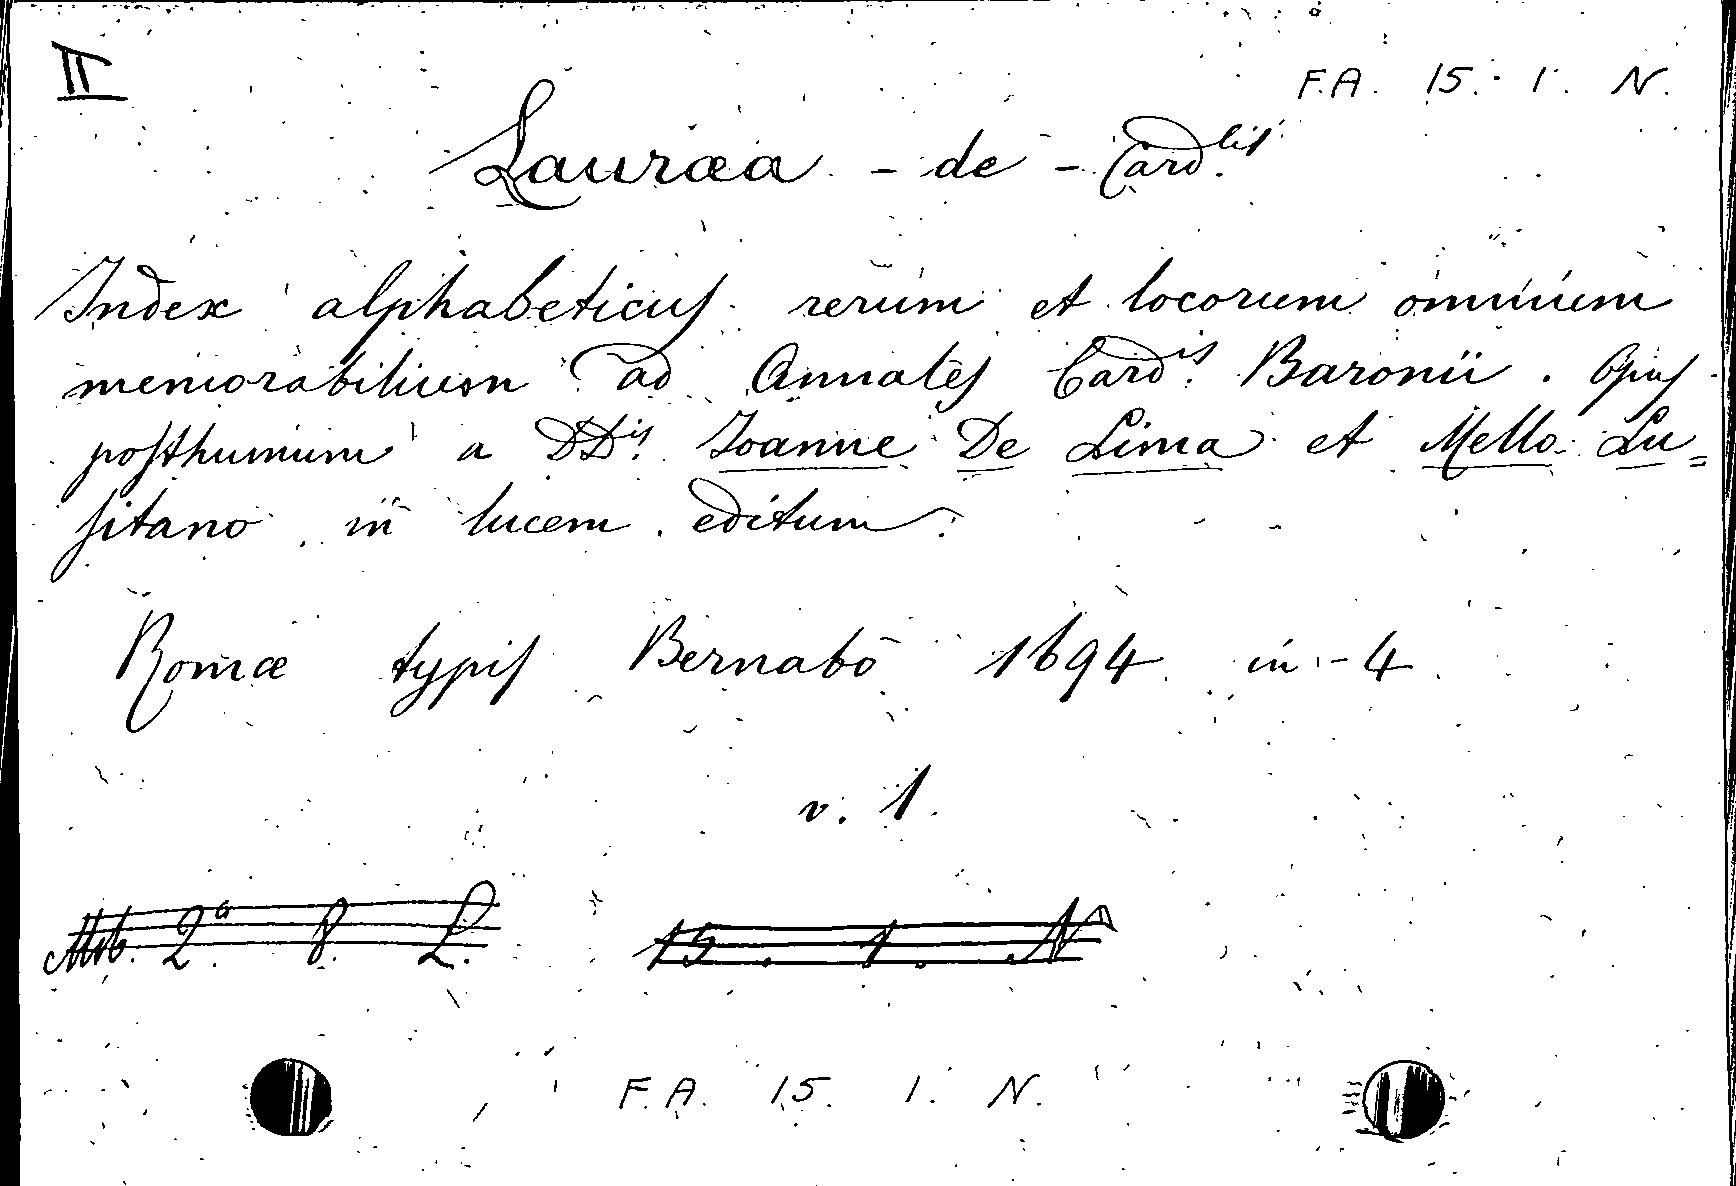 II
F.A. 15. 1. N.
Lauræa - de - Card.lis
Index alphabeticus rerum et locorum omnium
memorabilium ad Annales Card.is Baronii. Opus
posthumum a DD.is Joanne De Lima et Mello Lu=
sitano in lucem editum.
Romæ typis Bernabò 1694 in-4
v. 1.
2a 8. L. 15. 1. N
F.A. 15. 1. N.